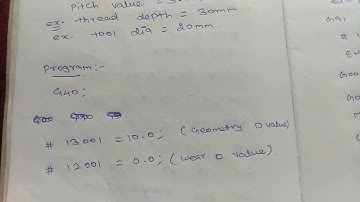 Pitch value =
ex. thread depth = 30mm
ex. tool dia = 20mm.
Program:-
G40;
# 13001 = 10.0; (Geometry D value)
# 12001 = 0.0; (wear D value)
G91